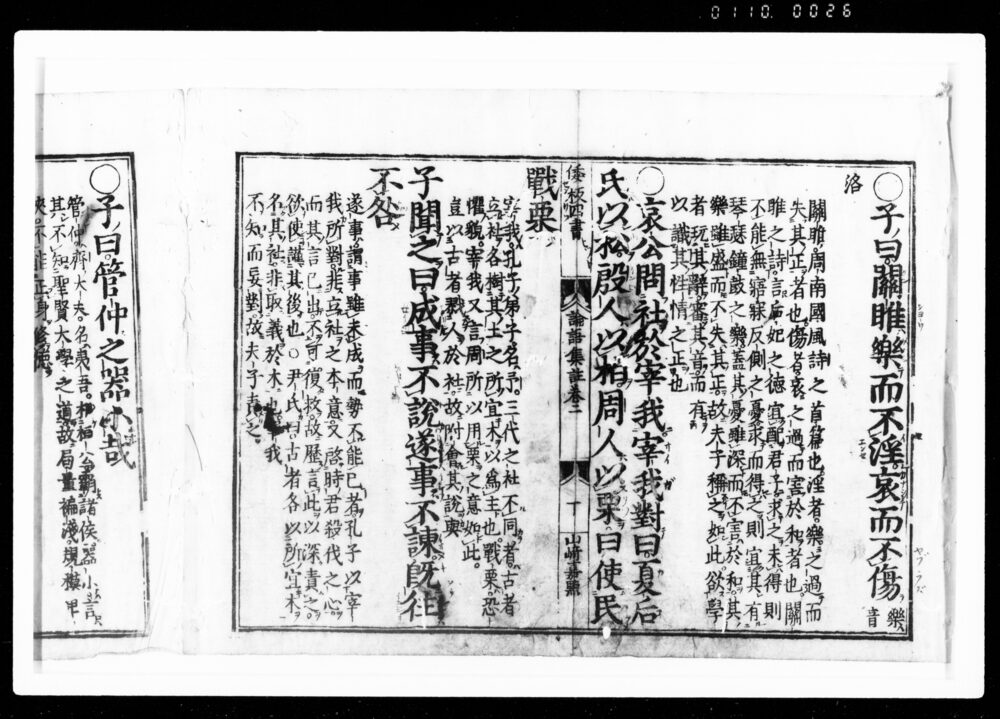 0110 0026
○子曰關雎樂而不淫哀而不傷樂音
洛
關雎周南國風詩之首篇也淫者樂之過而
失其正者也傷者哀之過而害於和者也關
雎之詩言后妃之德宜配君子求之未得則
不能無寤寐反側之憂求而得之則宜其有
琴瑟鐘鼓之樂蓋其憂雖深而不害於和其
樂雖盛而不失其正故夫子稱之如此欲學
者玩其辭審其音而有
以識其性情之正也
○哀公問社於宰我宰我對曰夏后
氏以松殷人以柏周人以栗曰使民
倭板四書 論語集註卷二 十 山崎嘉點
戰栗
宰我孔子弟子名予三代之社不同者古者
立社各樹其土之所宜木以為主也戰栗恐
懼貌宰我又言周所以用栗之意如此
豈以古者戮人於社故附會其說與
子聞之曰成事不說遂事不諫既往
不咎
遂事謂事雖未成而勢不能已者孔子以宰
我所對非立社之本意又啓時君殺伐之心
而其言已出不可復救故歷言此以深責之
欲使謹其後也○尹氏曰古者各以所宜木
名其社非取義於木也宰我
不知而妄對故夫子責之
○子曰管仲之器小哉
管仲齊大夫名夷吾相桓公霸諸侯器小言
其不知聖賢大學之道故局量褊淺規模卑
狹不能正身修德